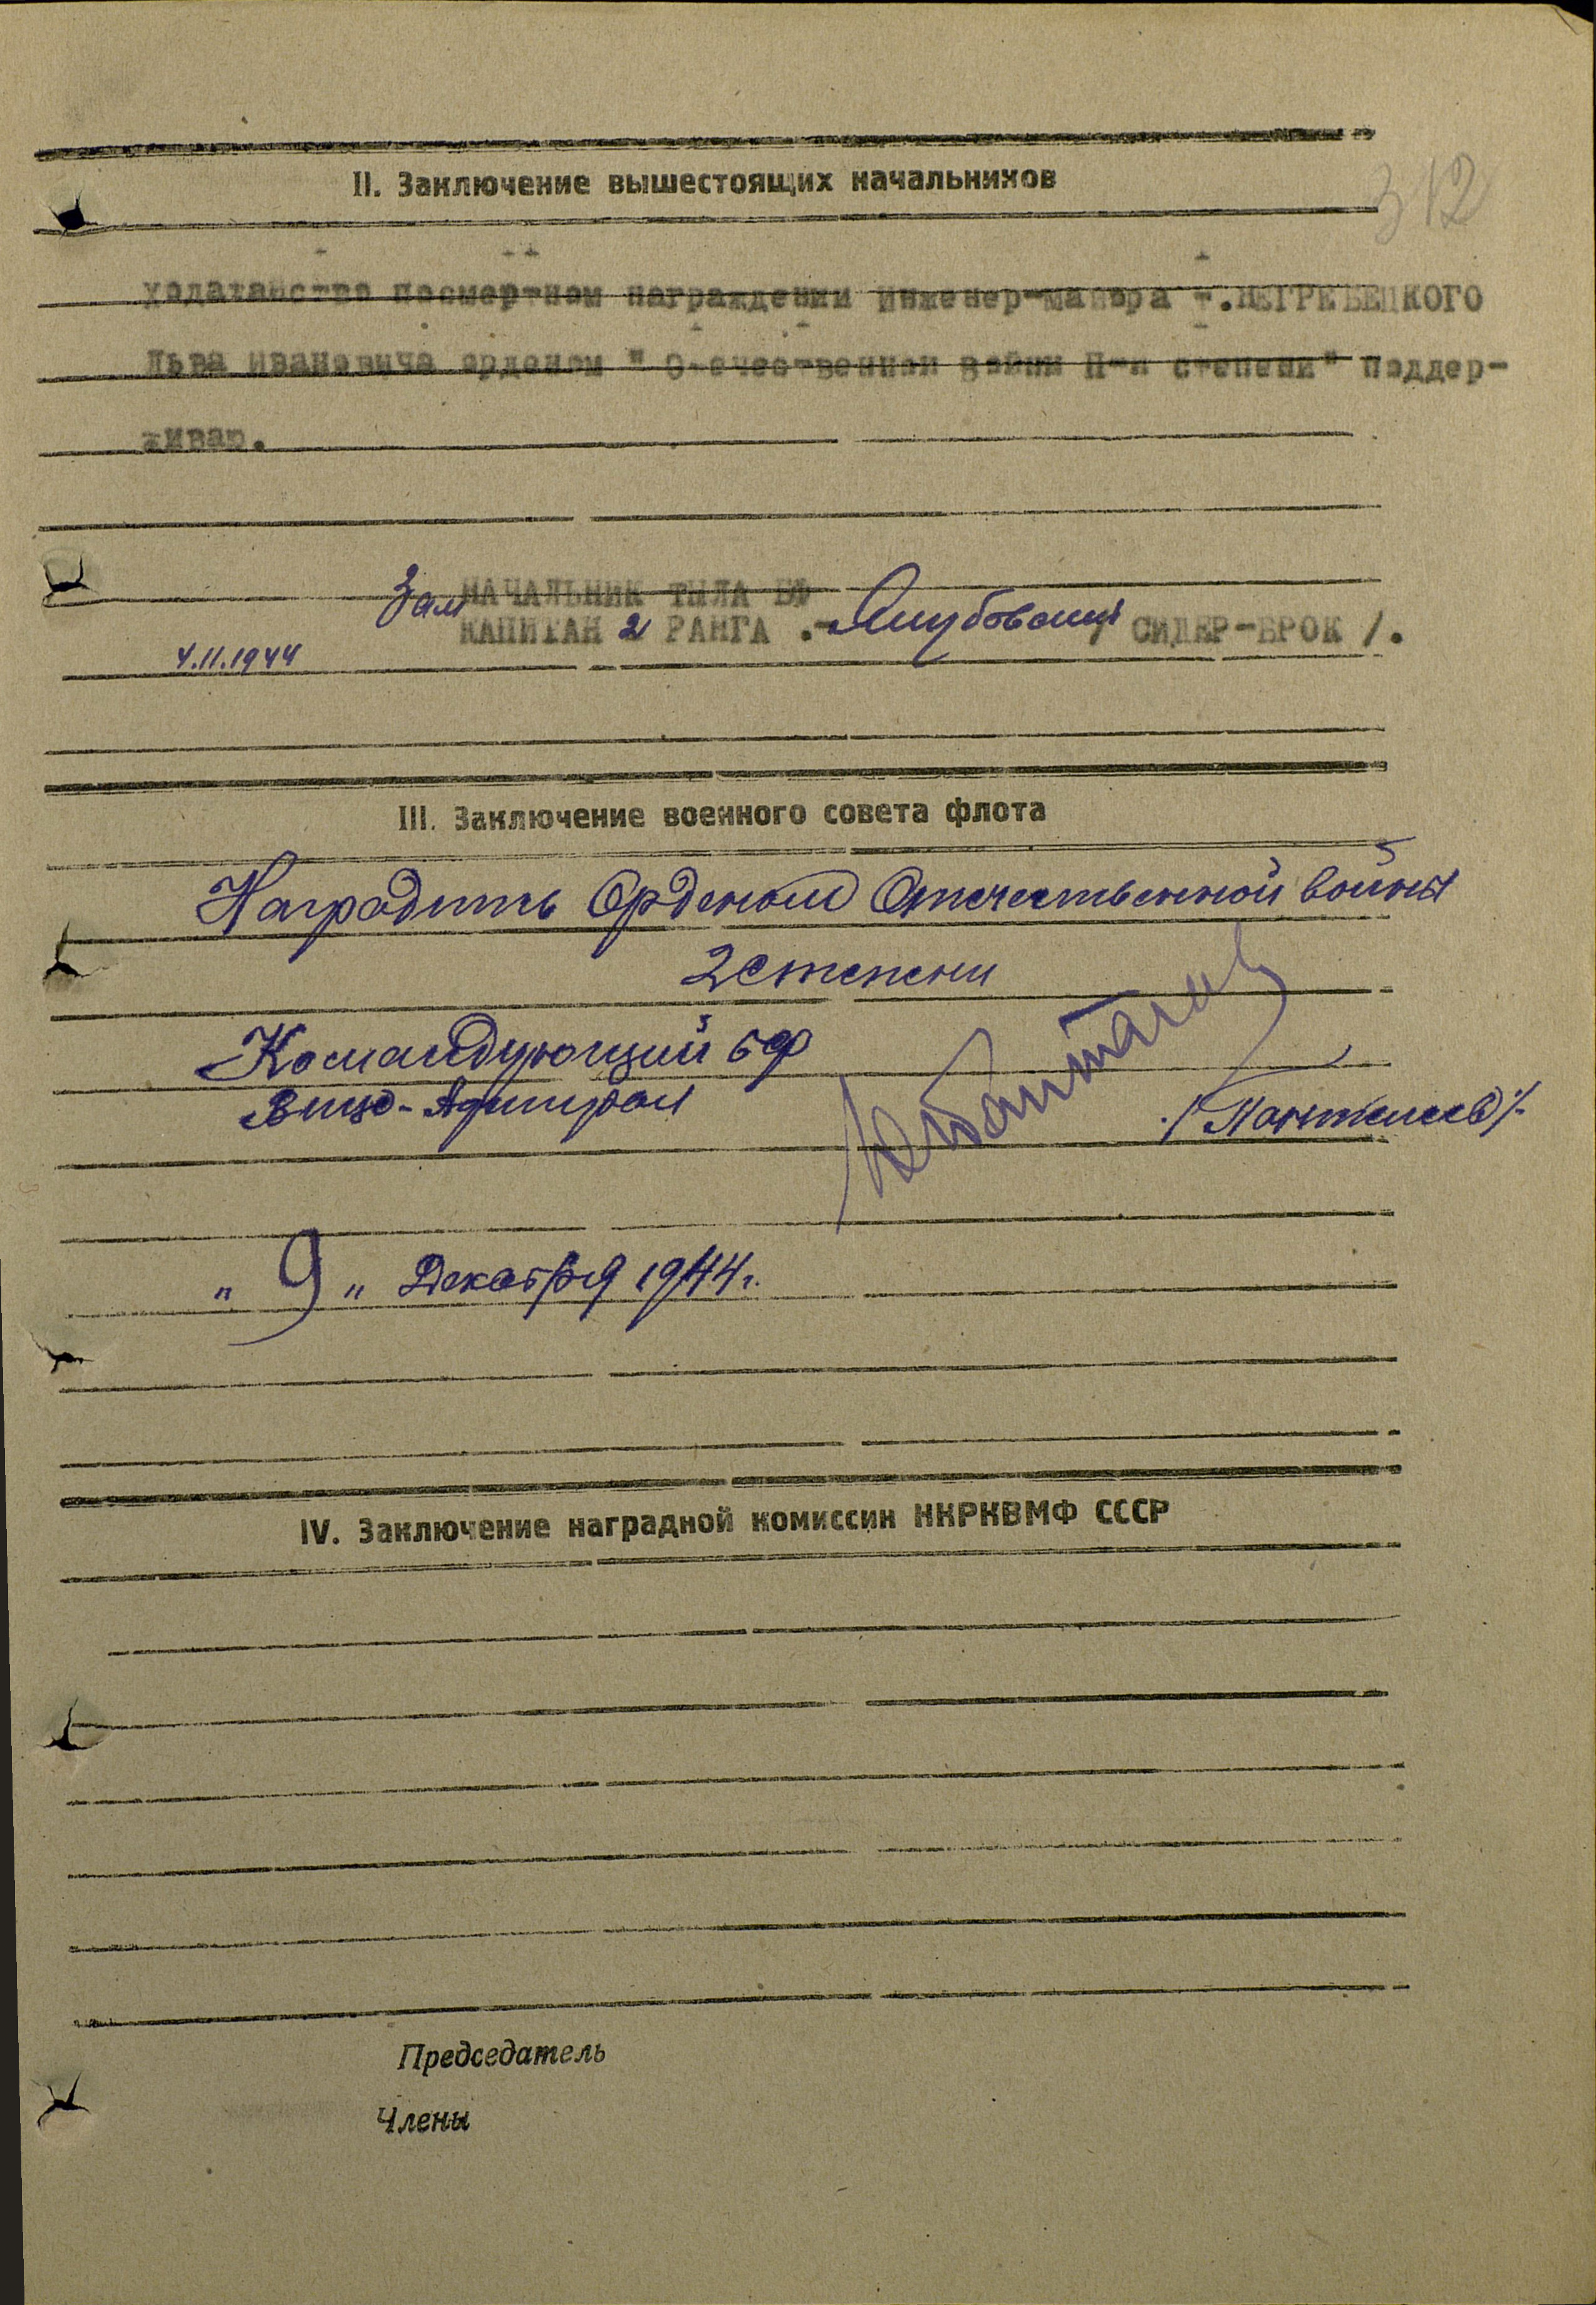 312
II. Заключение вышестоящих начальников
Ходатайство посмертном награждении инженер-майора т.НЕГРЕБЕЦКОГО
Льва Ивановича орденом " Отечественной войны П-й степени" поддер-
живаю.
Зам НАЧАЛЬНИК ТЫЛА БФ
КАПИТАН 2 РАНГА .- Якубовский / СИДЕР-БРОК /.
4.11.1944
III. Заключение военного совета флота
Наградить Орденом Отечественной войны
2 степени
Командующий БФ
Вице-Адмирал
/Пантелеев/
" 9 " Декабря 1944 г.
IV. Заключение наградной комиссии НКРКВМФ СССР
Председатель
Члены